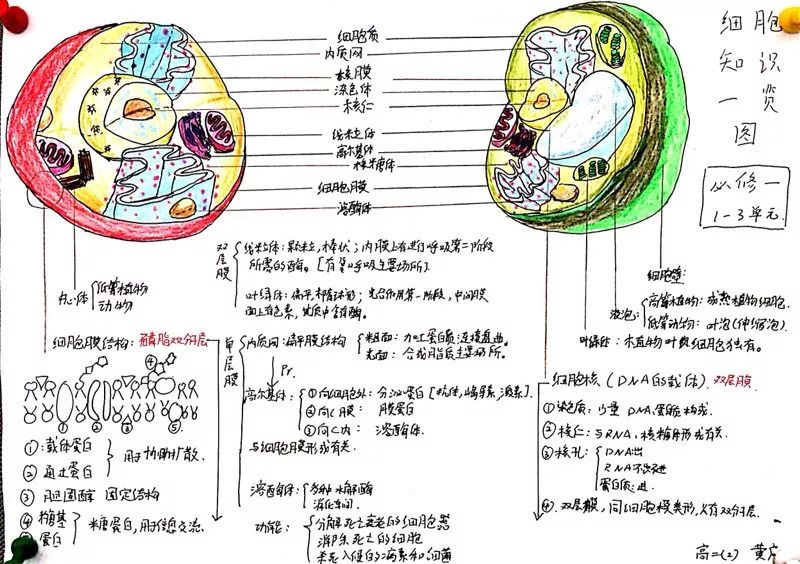 细胞
知识
一览
图
必修一
1-3单元.
细胞质
内质网
核膜
染色体
核仁
线粒体
高尔基体
核糖体
细胞膜
溶酶体
中心体
低等植物
动物
双层膜
线粒体: 颗粒, 棒状; 内膜上有进行呼吸第二阶段
所需的酶。[有氧呼吸主要场所]
叶绿体: 扁平, 椭球形; 光合作用第一阶段, 中间膜
面上有色素, 基质中含有酶。
细胞壁
液泡:
高等植物: 成熟植物细胞.
低等动物: 伸缩泡).
叶绿体: 本植物叶肉细胞独有。
细胞膜结构: 磷脂双分子层
单层膜
内质网: 扁平膜结构
粗面: 加工蛋白质
光面: 合成脂质主要场所。
Pr.
高尔基体:
①向细胞外: 分泌蛋白[抗体, 激素].
②向C膜: 膜蛋白
③向C内: 溶酶体
与细胞膜形成有关.
溶酶体:
多种水解酶
消化车间
功能:
分解死亡衰老的细胞器
消除死亡的细胞
杀死入侵的病毒和细菌
①: 载体蛋白
② 通道蛋白
用于协助扩散.
③ 胆固醇 固定结构
④ 糖基
⑤ 蛋白
糖蛋白, 用于信息交流.
④
①
②
③
⑤
细胞核 (DNA的载体). 双层膜.
①染色质: 少量DNA, 蛋白质构成.
②核仁: 与RNA, 核糖体形成有关.
③核孔:
DNA不出
RNA
蛋白质: 进.
④. 双层膜, 同细胞膜类形, 双分子层.
高二(2)